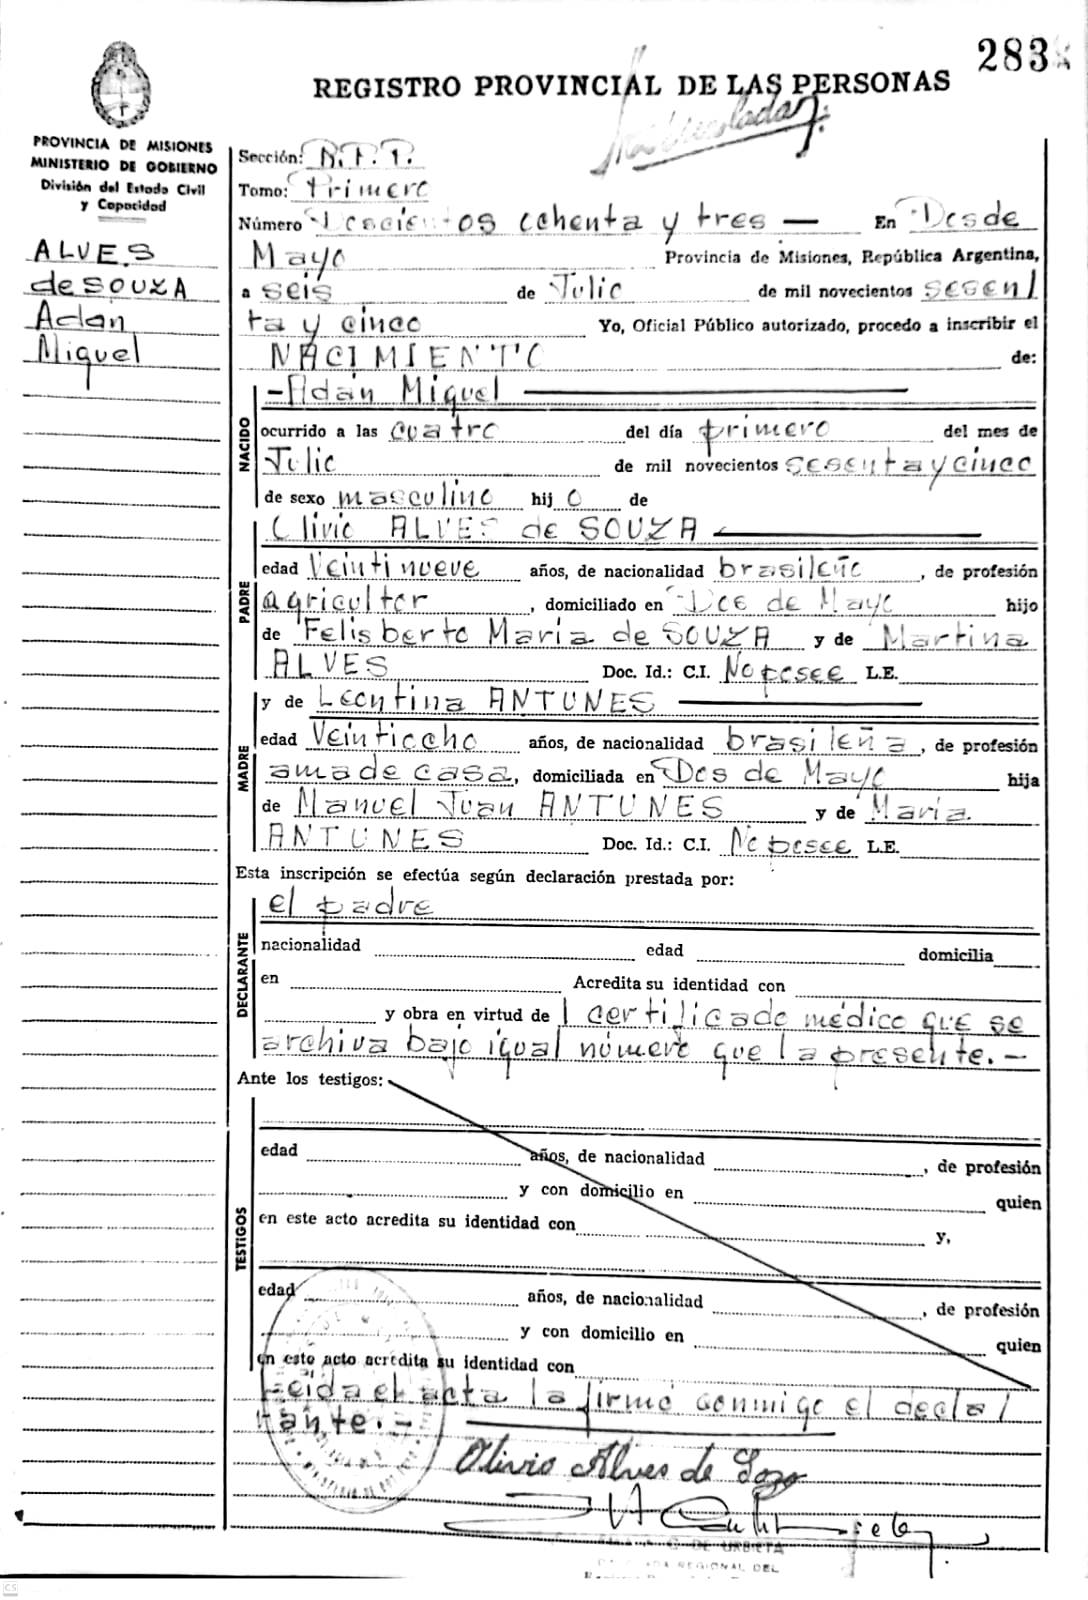 283
REGISTRO PROVINCIAL DE LAS PERSONAS
PROVINCIA DE MISIONES
MINISTERIO DE GOBIERNO
División del Estado Civil
y Capacidad
ALVES
de SOUZA
Adan
Miguel
Sección: R.P.P.
Tomo: Primero
Número Doscientos ochenta y tres — En Dos de
Mayo Provincia de Misiones, República Argentina,
a seis de Julio de mil novecientos sesen/
ta y cinco Yo, Oficial Público autorizado, procedo a inscribir el
NACIMIENTO de:
NACIDO
-Adán Miguel
ocurrido a las cuatro del día primero del mes de
Julio de mil novecientos sesenta y cinco
de sexo masculino hij o de
PADRE
Olivio ALVES de SOUZA
edad Veintinueve años, de nacionalidad brasileño, de profesión
agricultor, domiciliado en Dos de Mayo hijo
de Felisberto María de SOUZA y de Martina
ALVES Doc. Id.: C.I. No posee L.E.
MADRE
y de Leontina ANTUNES
edad Veintiocho años, de nacionalidad brasileña, de profesión
ama de casa, domiciliada en Dos de Mayo hija
de Manuel Juan ANTUNES y de María
ANTUNES Doc. Id.: C.I. No posee L.E.
Esta inscripción se efectúa según declaración prestada por:
DECLARANTE
el padre
nacionalidad edad domicilia
en Acredita su identidad con
y obra en virtud de 1 certificado médico que se
archiva bajo igual número que la presente.-
Ante los testigos:
TESTIGOS
edad años, de nacionalidad, de profesión
y con domicilio en quien
en este acto acredita su identidad con y,
edad años, de nacionalidad, de profesión
y con domicilio en quien
en este acto acredita su identidad con
Leída el acta la firmó conmigo el decla/
rante.-
Olivio Alves de Soza
DE URBIETA
REGIONAL DEL
CS